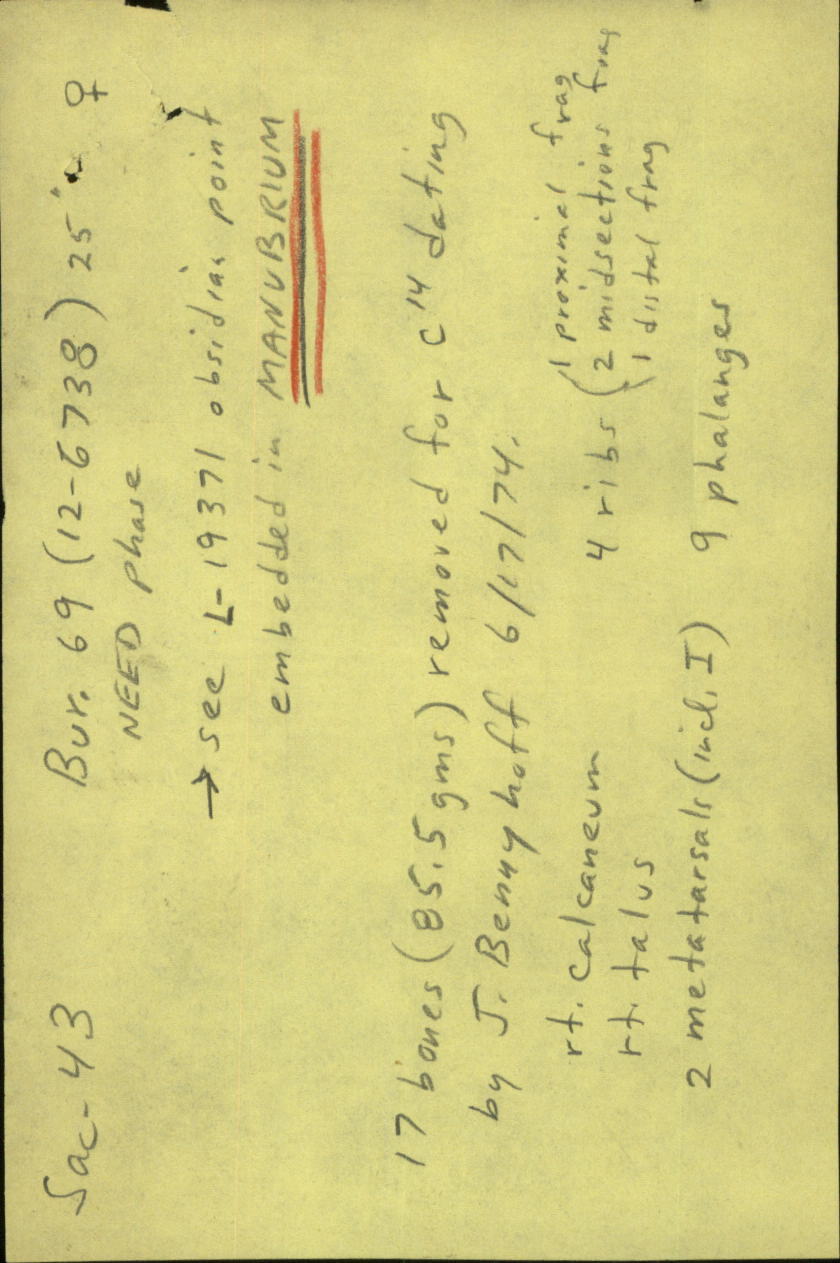 Sac-43 Bur. 69 (12-6738) 25" ♀
NEED phase
→ see L-19371 obsidian point
embedded in MANUBRIUM
17 bones (85.5 gms) removed for C14 dating
by J. Bennyhoff 6/17/74.
rt. calcaneum 4 ribs ( 1 proximal frag
2 midsections frag
1 distal frag
rt. talus
2 metatarsals (incl. I) 9 phalanges